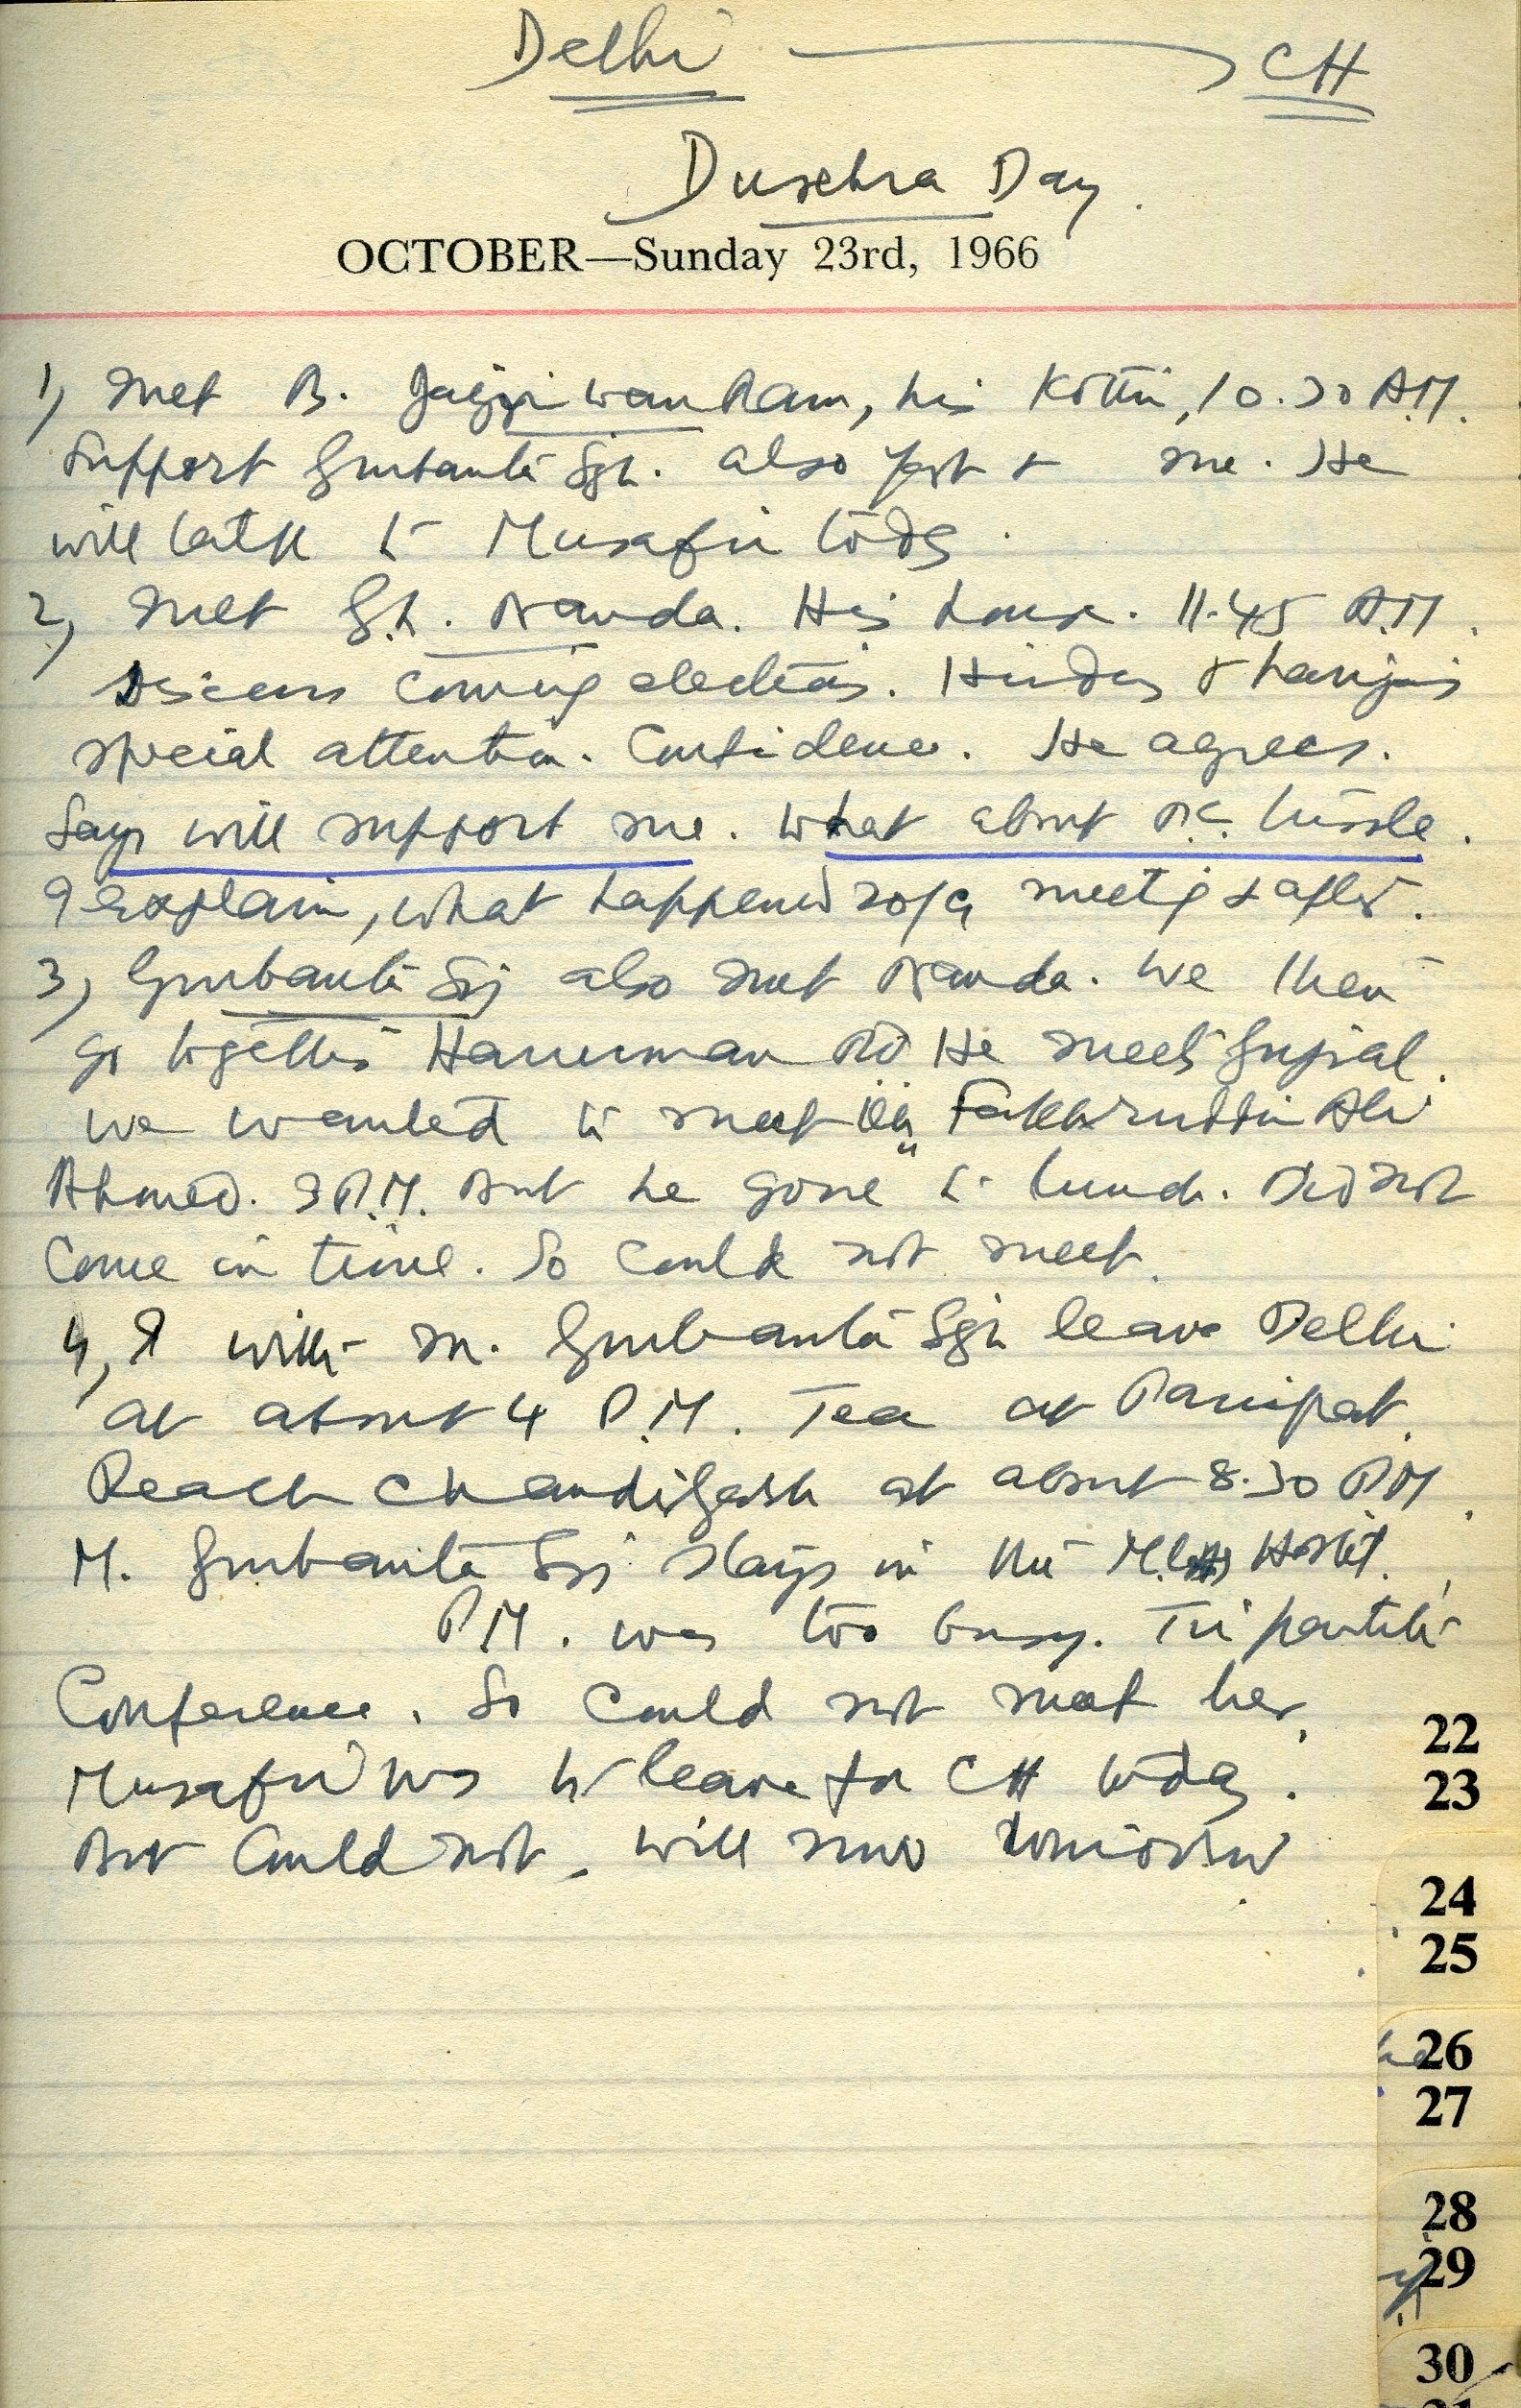 Delhi → CH
Dusehra Day.
OCTOBER—Sunday 23rd, 1966
1) Met B. Jagjiwan Ram, his Kothi, 10.30 A.M.
Support Gurbanta Sgh. also & me. He
will talk to Musafir today.
2) Met Sh. Nanda. His house. 11.45 A.M.
Discuss coming elections. Hindus & harijans
special attention. Confidence. He agrees.
Says will support me. What about tussle.
I explain, what happened 20/9 meeting & after.
3) Gurbanta Sgh also met Nanda. We then
go together Hanuman Rd He meets Gujral.
We wanted to meet Fakhruddin Ali
Ahmed. 3 P.M. But he gone to lunch. Did not
come in time. So could not meet.
4) I with M. Gurbanta Sgh leave Delhi
at about 4 P.M. Tea at Panipat.
Reach Chandigarh at about 8.30 P.M.
M. Gurbanta Sgh stays in the M.L.A's Hostel.
P.M. was too busy. Tripartite
Conference. So could not meet her.
Musafir was to leave for CH today.
But could not. Will now tomorrow.
22
23
24
25
26
27
28
29
30
31